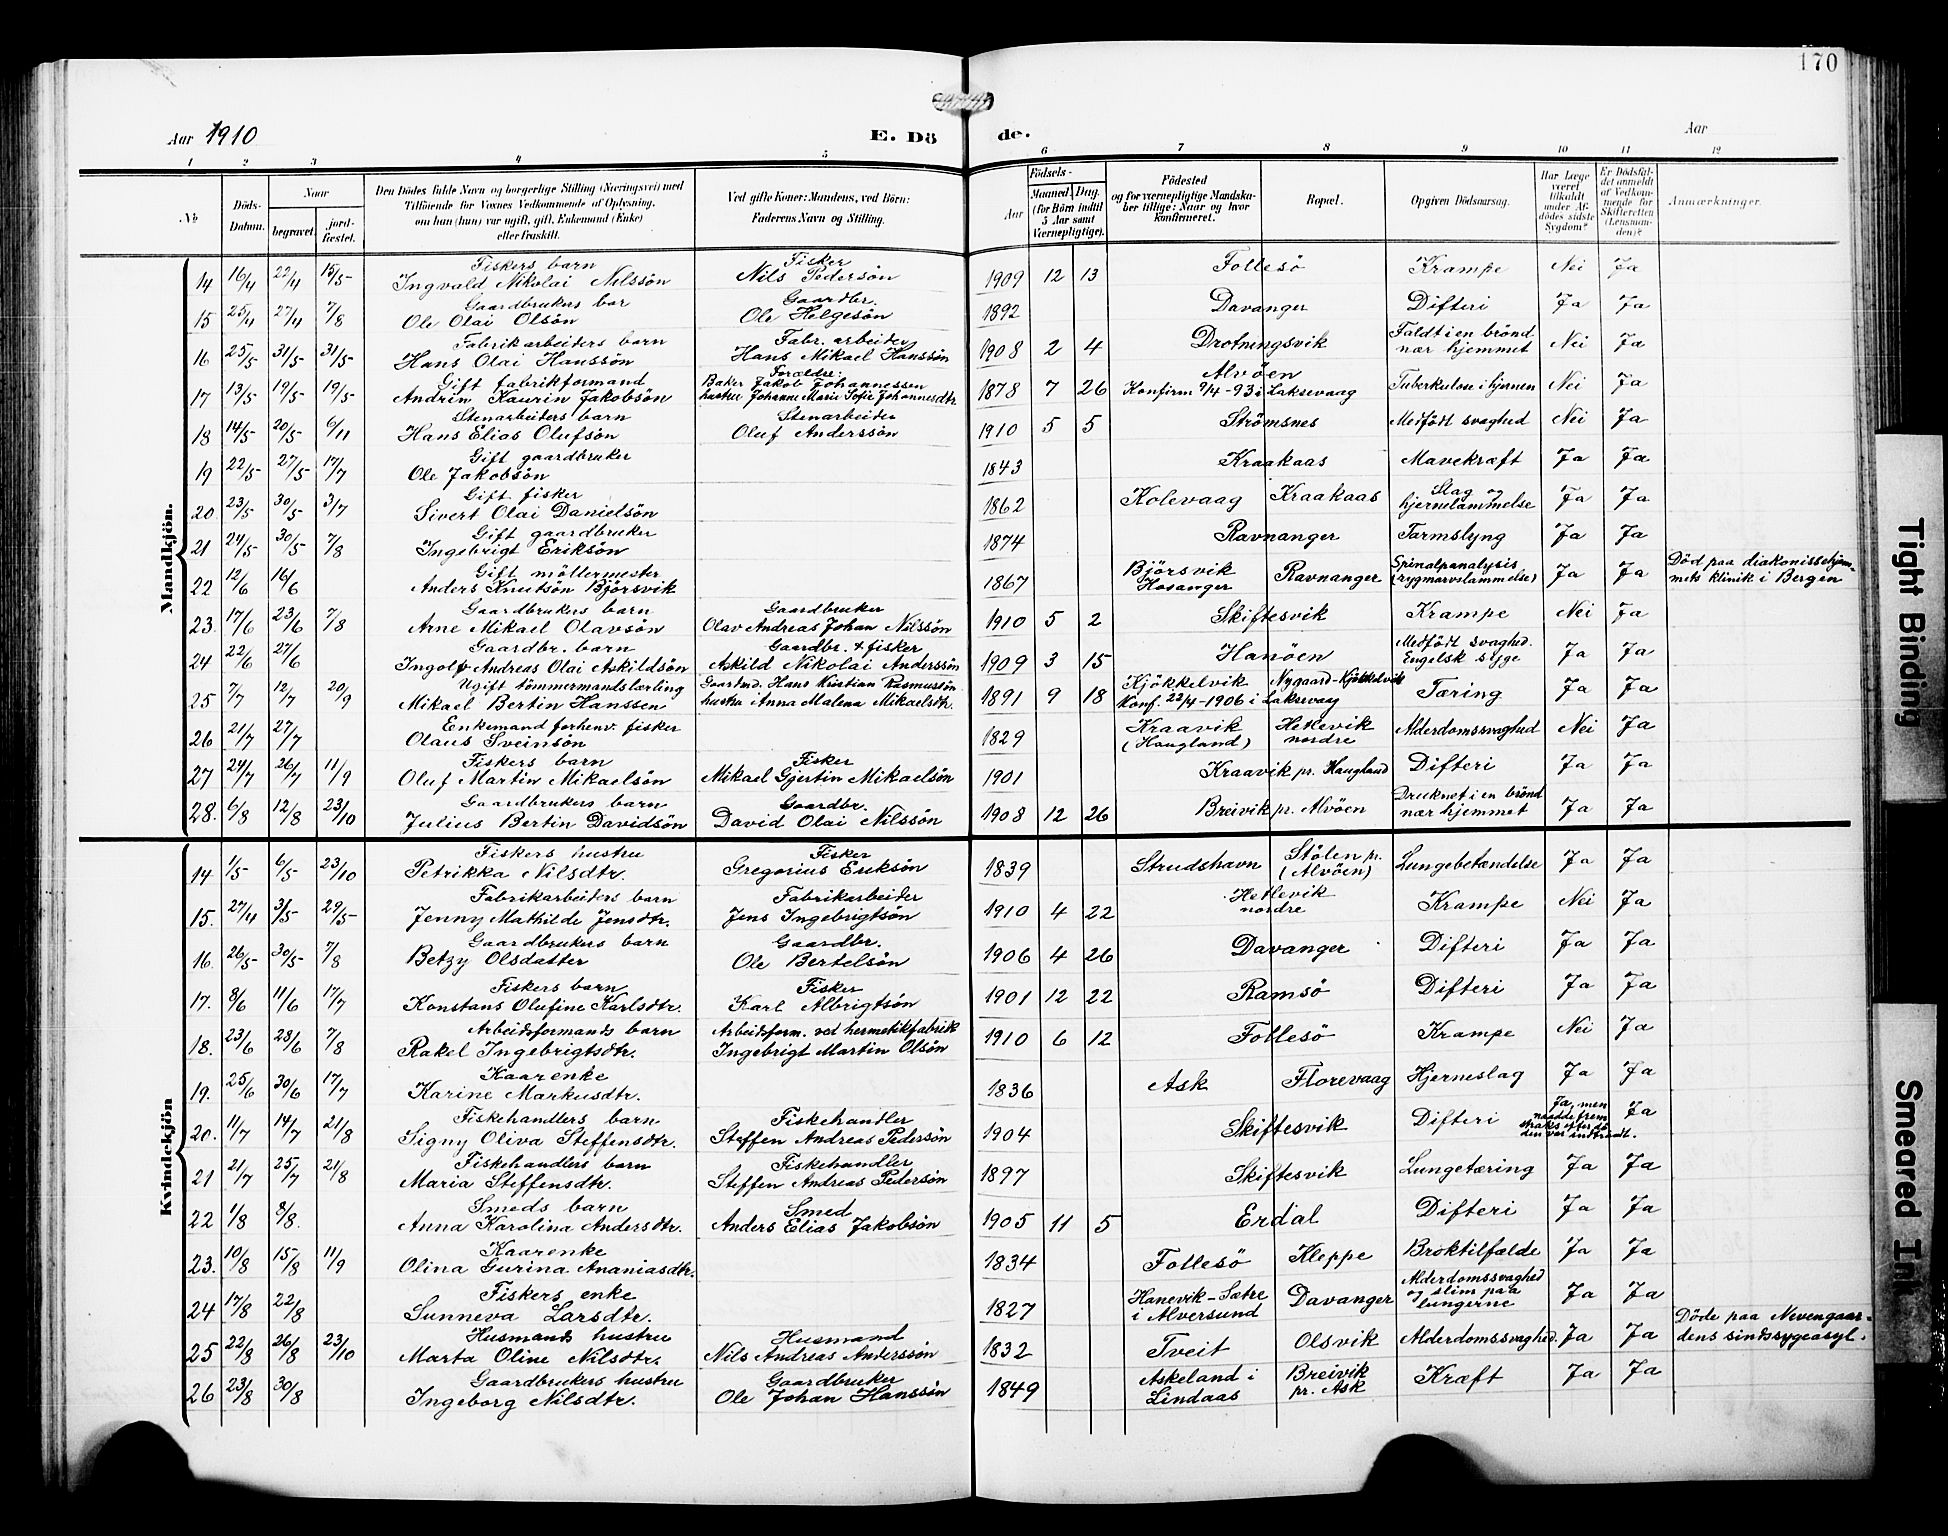 170
Aar 1910
E. Dö
de.
Aar
1 2 3 4 5 6 7 8 9 10 11 12
No
Döds-Datum.
Naar
begravet.
jord-fæstet.
Den Dödes fulde Navn og borgerlige Stilling (Næringsvei) med
Tilföiende for Voxnes Vedkommende af Oplysning,
om han (hun) var ugift, gift, Enkemand (Enke)
eller fraskilt.
Ved gifte Koner: Mandens, ved Börn:
Faderens Navn og Stilling.
Födsels-
Aar
Maaned. Dag.
(for Börn indtil
5 Aar samt
Værnepligtige).
Födested
og for værnepligtige Mandska-
ber tillige: Naar og hvor
konfirmeret.
Bopæl.
Opgiven Dödsaarsag.
Har Læge
været
tilkaldt
under Af-
dödes sidste
Sygdom?
Er Dödsfal-
det anmeldt
af Vedkom-
mende for
Skifteretten
(Lensman-
den)?
Anmærkninger.
Mandkjön.
Fiskers barn Fisker
14 16/4 22/4 15/5 Ingvald Nikolai Nilssön Nils Pedersön 1909 12 13 Follesö Krampe Nei Ja
Gaardbrukers bar Gaardbr.
15 25/4 27/4 7/8 Ole Olai Olsön Ole Helgesön 1892 Davanger Difteri Ja Ja
Fabrikarbeiders barn Fabr. arbeider Faldt i en brönd
16 25/5 31/5 31/5 Hans Olai Hanssön Hans Mikael Hanssön 1908 2 4 Drotningsvik nær hjemmet Nei Ja
Gift fabrikformand Forældre: Baker Jakob Johannessen Alvöen
17 13/5 19/5 19/5 Andrin Kaurin Jakobsön hustru Johanne Marie Sofie Johannesdtr 1878 7 26 Konfirm 9/4-93 i Laksevaag Tuberkulose i hjernen Nei Ja
Stenarbeiders barn Stenarbeider
18 14/5 20/5 6/11 Hans Elias Olufsön Oluf Anderssön 1910 5 5 Strömsnes Medfödt svaghed Nei Ja
Gift gaardbruker
19 22/5 27/5 17/7 Ole Jakobsön 1843 Kraakaas Mavekræft Ja Ja
Gift fisker Slag og
20 23/5 30/5 3/7 Sivert Olai Danielsön 1862 Kolevaag Kraakaas hjernelammelse Ja Ja
Gift gaardbruker
21 24/5 30/5 7/8 Ingebrigt Eriksön 1874 Ravnanger Tarmslyng Ja Ja
Gift möllermester Björsvik Spinalpanalysis Död paa diakonissehjem-
22 12/6 16/6 Anders Knutsön Björsvik 1867 Hosanger Ravnanger (rygmarvslammelse) Ja Ja mets klinik i Bergen
Gaardbrukers barn Gaardbruker
23. 17/6 23/6 7/8 Arne Mikael Olavsön Olav Andreas Johan Nilssön 1910 5 2 Skiftesvik Krampe Nei Ja
Gaardbr. barn Gaardbr. + fisker Medfödt svaghed.
24 22/6 27/6 Ingolf Andreas Olai Askildsön Askild Nikolai Anderssön 1909 3 15 Hanöen Engelsk syge Ja Ja
Ugift tömmermandslærling Gaardmd. Hans Kristian Rasmussön Kjökkelvik Nygaard-Kjökkelvik
25 7/7 12/7 20/9 Mikael Bertin Hanssen hustru Anna Malena Mikaelsdtr. 1891 9 18 Konf. 22/4-1906 i Laksevaag Tæring Ja Ja
Enkemand forhenv. fisker Kraavik Hetlevik
26 21/7 27/7 Olaus Sveinsön 1829 (Haugland) nordre Alderdomssvaghed Nei Ja
Fiskers barn Fisker
27 24/7 26/7 11/9 Oluf Martin Mikaelsön Mikael Gjertin Mikaelsön 1901 Kraavik pr. Haugland Difteri Ja Ja
Gaardbrukers barn Gaardbr. Druknet i en brönd
28. 6/8 12/8 23/10 Julius Bertin Davidsön David Olai Nilssön 1908 12 26 Breivik pr. Alvöen nær hjemmet Ja Ja
Kvindekjön
Fiskers hustru Fisker Stölen pr.
14 1/5 6/5 23/10 Petrikka Nilsdtr. Gregorius Eriksön 1839 Strudshavn (Alvöen) Lungebetændelse Ja Ja
Fabrikarbeiders barn Fabrikarbeider Hetlevik
15. 27/4 3/5 29/5 Jenny Mathilde Jensdtr. Jens Ingebrigtsön 1910 4 22 nordre Krampe Nei Ja
Gaardbrukers barn Gaardbr.
16. 26/5 30/5 7/8 Betzy Olsdatter Ole Bertelsön 1906 4 26 Davanger Difteri Ja Ja
Fiskers barn Fisker
17. 8/6 11/6 17/7 Konstans Olufine Karlsdtr. Karl Albrigtsön 1901 12 22 Ramsö Difteri Ja Ja
Arbeidsformands barn Arbeidsform. ved hermetikfabrik
18. 23/6 28/6 7/8 Rakel Ingebrigtsdtr. Ingebrigt Martin Olsön 1910 6 12 Follesö Krampe Nei Ja
Kaarenke
19. 25/6 30/6 17/7 Karine Markusdtr. 1836 Ask Florevaag Hjerneslag Ja Ja
Fiskehandlers barn Fiskehandler Ja, men naadde frem
20. 11/7 14/7 21/8 Signy Oliva Steffensdtr. Steffen Andreas Pedersön 1904 Skiftesvik Difteri straks efter dö den var indtraadt. Ja
Fiskehandlers barn Fiskehandler
21 21/7 25/7 21/8 Maria Steffensdtr. Steffen Andreas Pedersön 1897 Skiftesvik Lungetæring Ja Ja
Smeds barn Smed
22 1/8 8/8. Anna Karolina Andersdtr. Anders Elias Jakobsön 1905 11 5 Erdal Difteri Ja Ja
Kaarenke
23. 10/8 15/8 11/9 Olina Gurina Ananiasdtr. 1834 Follesö Kleppe Broktilfælde Ja Ja
Fiskers enke Hanevik-Sætre Alderdomssvaghed og slim paa
24 17/8 22/8 Sunneva Larsdtr. 1827 i Alversund Davanger lungerne Ja Ja
Husmands hustru Husmand Döde paa Nevengaar-
25 22/8 26/8 23/10 Marta Oline Nilsdtr. Nils Andreas Anderssön 1832 Tveit Olsvik Alderdomssvaghed. Ja Ja dens sindssygeasyl.
Gaardbrukers hustru Gaardbruker Askeland i Breivik
26 23/8 30/8 Ingeborg Nilsdtr. Ole Johan Hanssön 1849 Lindaas pr. Ask Kræft Ja Ja
Tight Binding
Smeared Ink